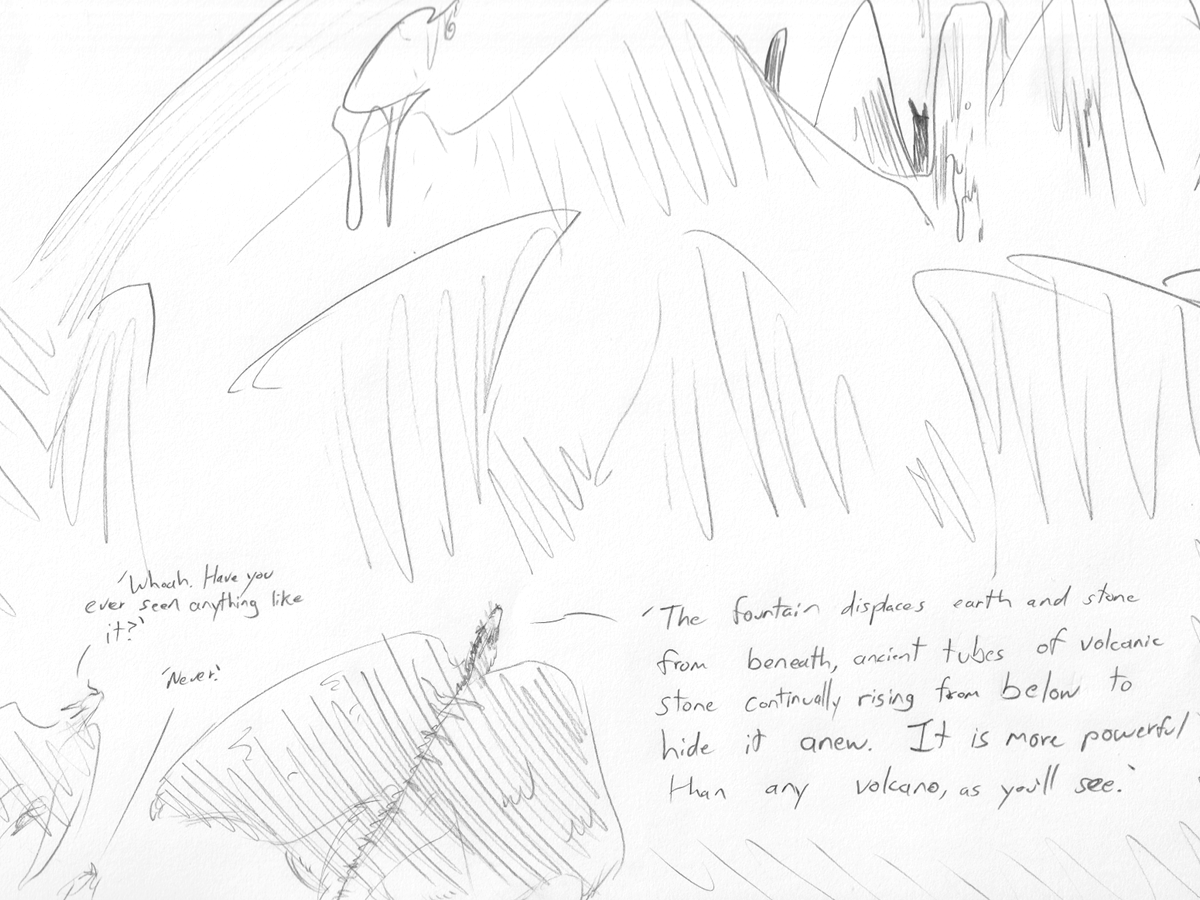 'Whoah. Have you
ever seen anything like
it?'
'Never.'
'The fountain displaces earth and stone
from beneath, ancient tubes of volcanic
stone continually rising from below to
hide it anew. It is more powerful
than any volcano, as you'll see.'